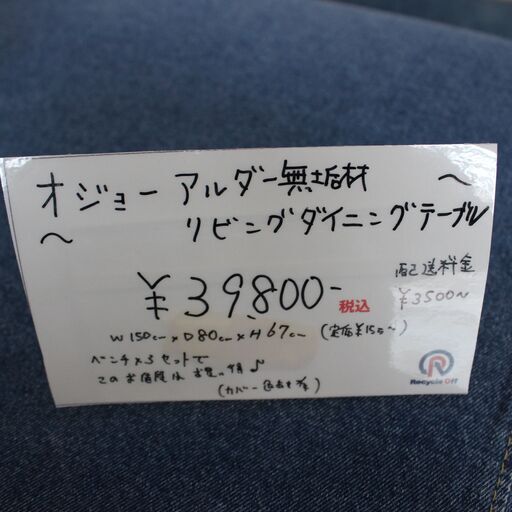 オジョー アルダー無垢材 〜
〜 リビングダイニングテーブル
配送料金
¥3500〜
¥39,800- 税込
W150cm×D80cm×H67cm (定価¥15万〜)
ベンチ×3セットで
このお値段はお買い得♪
(カバー色あせ有)
Recycle Off